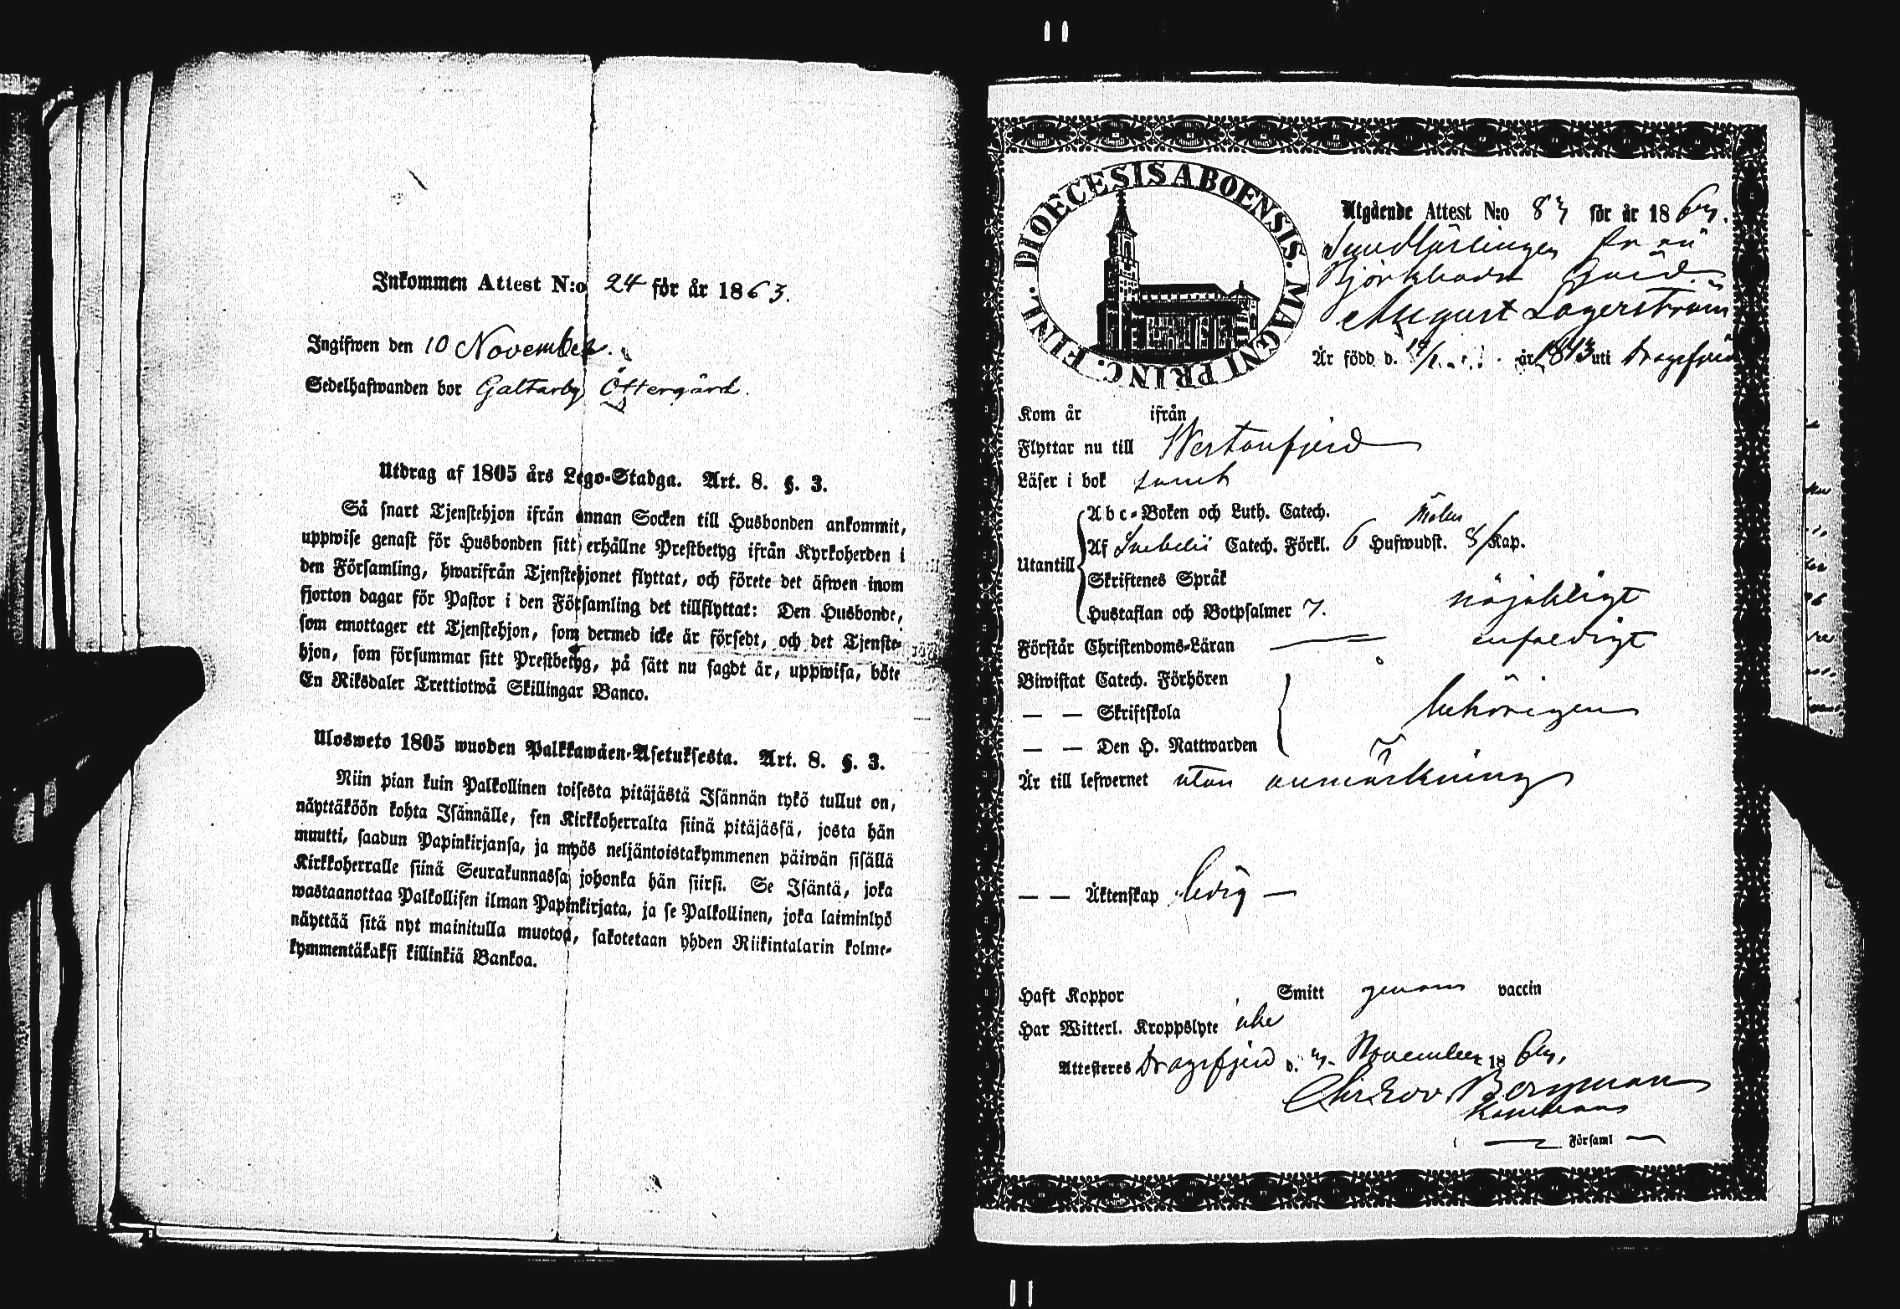 Inkommen Attest N:o 24 för år 1863.
Ingifwen den 10 November.
Sedelhafwanden bor Galtarby Östergård.
Utdrag af 1805 års Lego-Stadga. Art. 8. §. 3.
Så snart Tjenstehjon ifrån annan Socken till Husbonden ankommit,
uppwise genast för Husbonden sitt erhållne Prestbetyg ifrån Kyrkoherden i
den Församling, hwarifrån Tjenstehjonet flyttat, och förete det äfwen inom
fjorton dagar för Pastor i den Församling det tillflyttat: Den Husbonde,
som emottager ett Tjenstehjon, som dermed icke är försedt, och det Tjenste-
hjon, som försummar sitt Prestbetyg, på sätt nu sagdt är, uppwisa, böte
En Riksdaler Trettiotwå Skillingar Banco.
Ulosweto 1805 wuoden Palkkawäen-Asetuksesta. Art. 8. §. 3.
Niin pian kuin Palkollinen toisesta pitäjästä Isännän tykö tullut on,
näyttäköön kohta Isännälle, sen Kirkkoherralta siinä pitäjässä, josta hän
muutti, saadun Papinkirjansa, ja myös neljäntoistakymmenen päiwän sisällä
Kirkkoherralle siinä Seurakunnassa johonka hän siirsi. Se Isäntä, joka
wastaanottaa Palkollisen ilman Papinkirjata, ja se Palkollinen, joka laiminlyö
näyttää sitä nyt mainitulla muotoa, sakotetaan yhden Riikintalarin kolme-
kymmentäkaksi killinkiä Bankoa.
DIOECESIS ABOENSIS. MAGNI PRINC. FINL.
Utgående Attest N:o 83 för år 1863.
Björkboda Gård
August Lagerström
Är född d. år 1843 uti Dragsfjerd
Kom år ifrån
Flyttar nu till Westanfjerd
Läser i bok samt
Abc-Boken och Luth. Catech.
Af Svebelii Catech. Förkl. 6 Hufwudst. 8 Kap.
Utantill
Skriftenes Språk
Hustaflan och Botpsalmer 7. nöjaktigt
Förstår Christendoms-Läran enfaldigt
Biwistat Catech. Förhören
— — Skriftskola behörigen
— — Den H. Nattwarden
Är till lefwernet utan anmärkning
— — Äktenskap ledig —
Haft Koppor Smitt genom vaccin
Har Witterl. Kroppslyte icke
Attesteres Dragsfjerd d. 3 November 1863.
Bergman
Församl